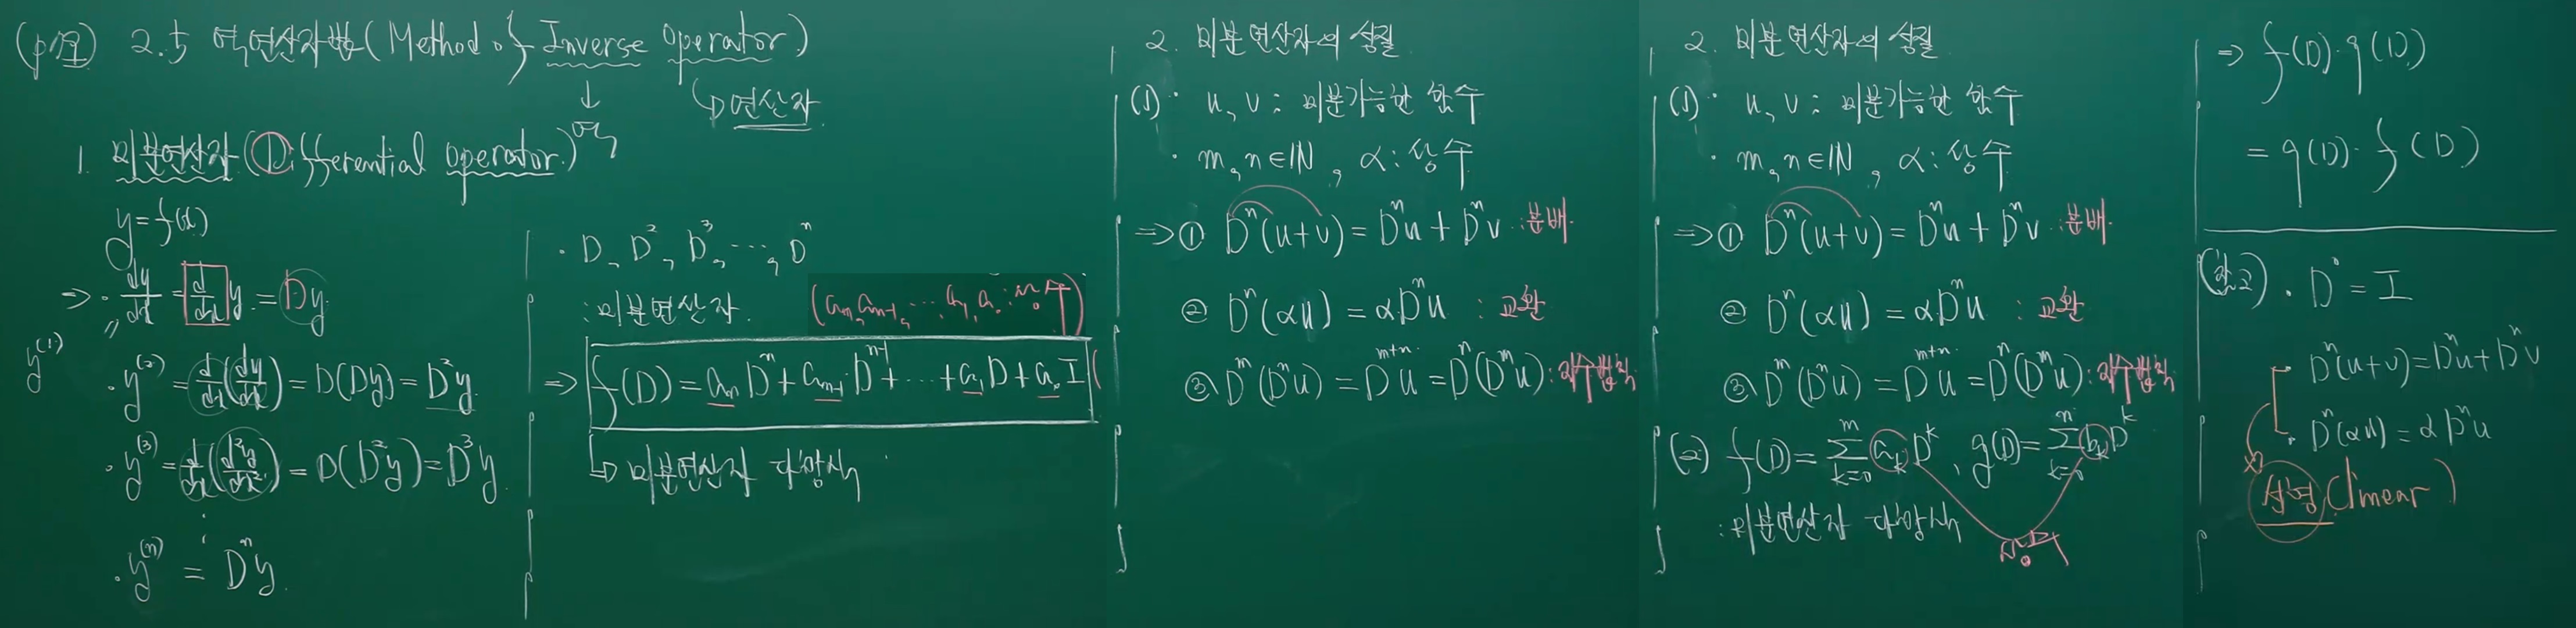 2.5 역연산자법 (Method of Inverse Operator)
역
연산자
1. 미분연산자 (Differential operator)
y=f(x)
⇒ · dy/dx = d/dx y = Dy
y⁽¹⁾
· y⁽²⁾ = d/dx(dy/dx) = D(Dy) = D²y
· y⁽³⁾ = d/dx(d²y/dx²) = D(D²y) = D³y
⋮
· y⁽ⁿ⁾ = Dⁿy.
· D, D², D³, ⋯, Dⁿ
: 미분연산자.
(aₙ, aₙ₋₁, ⋯, a₁, a₀ : 상수)
⇒ f(D) = aₙDⁿ + aₙ₋₁Dⁿ⁻¹ + ⋯ + a₁D + a₀I
↳ 미분연산자 다항식
2. 미분연산자의 성질
(1) · u, v : 미분가능한 함수
· m, n ∈ ℕ, α : 상수
⇒ ① Dⁿ(u+v) = Dⁿu + Dⁿv : 분배.
② Dⁿ(αu) = αDⁿu : 교환
③ Dᵐ(Dⁿu) = Dᵐ⁺ⁿu = Dⁿ(Dᵐu) : 지수법칙
2. 미분연산자의 성질
(1) · u, v : 미분가능한 함수
· m, n ∈ ℕ, α : 상수
⇒ ① Dⁿ(u+v) = Dⁿu + Dⁿv : 분배.
② Dⁿ(αu) = αDⁿu : 교환
③ Dᵐ(Dⁿu) = Dᵐ⁺ⁿu = Dⁿ(Dᵐu) : 지수법칙
(2) f(D) = Σₖ₌₀ᵐ aₖDᵏ, g(D) = Σₖ₌₀ⁿ bₖDᵏ
: 미분연산자 다항식
상수
⇒ f(D)·g(D)
= g(D)·f(D)
(참고) · D⁰ = I
· Dⁿ(u+v) = Dⁿu + Dⁿv
· Dⁿ(αu) = αDⁿu
선형 (linear)